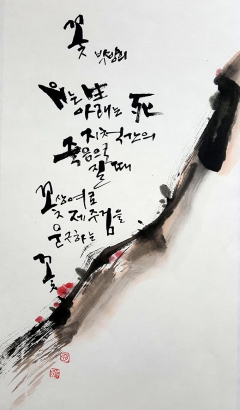 꽃
위는 生
아래는 死
지척간의
죽음앞
질때
꽃상여로
제주검을
운구하는
꽃